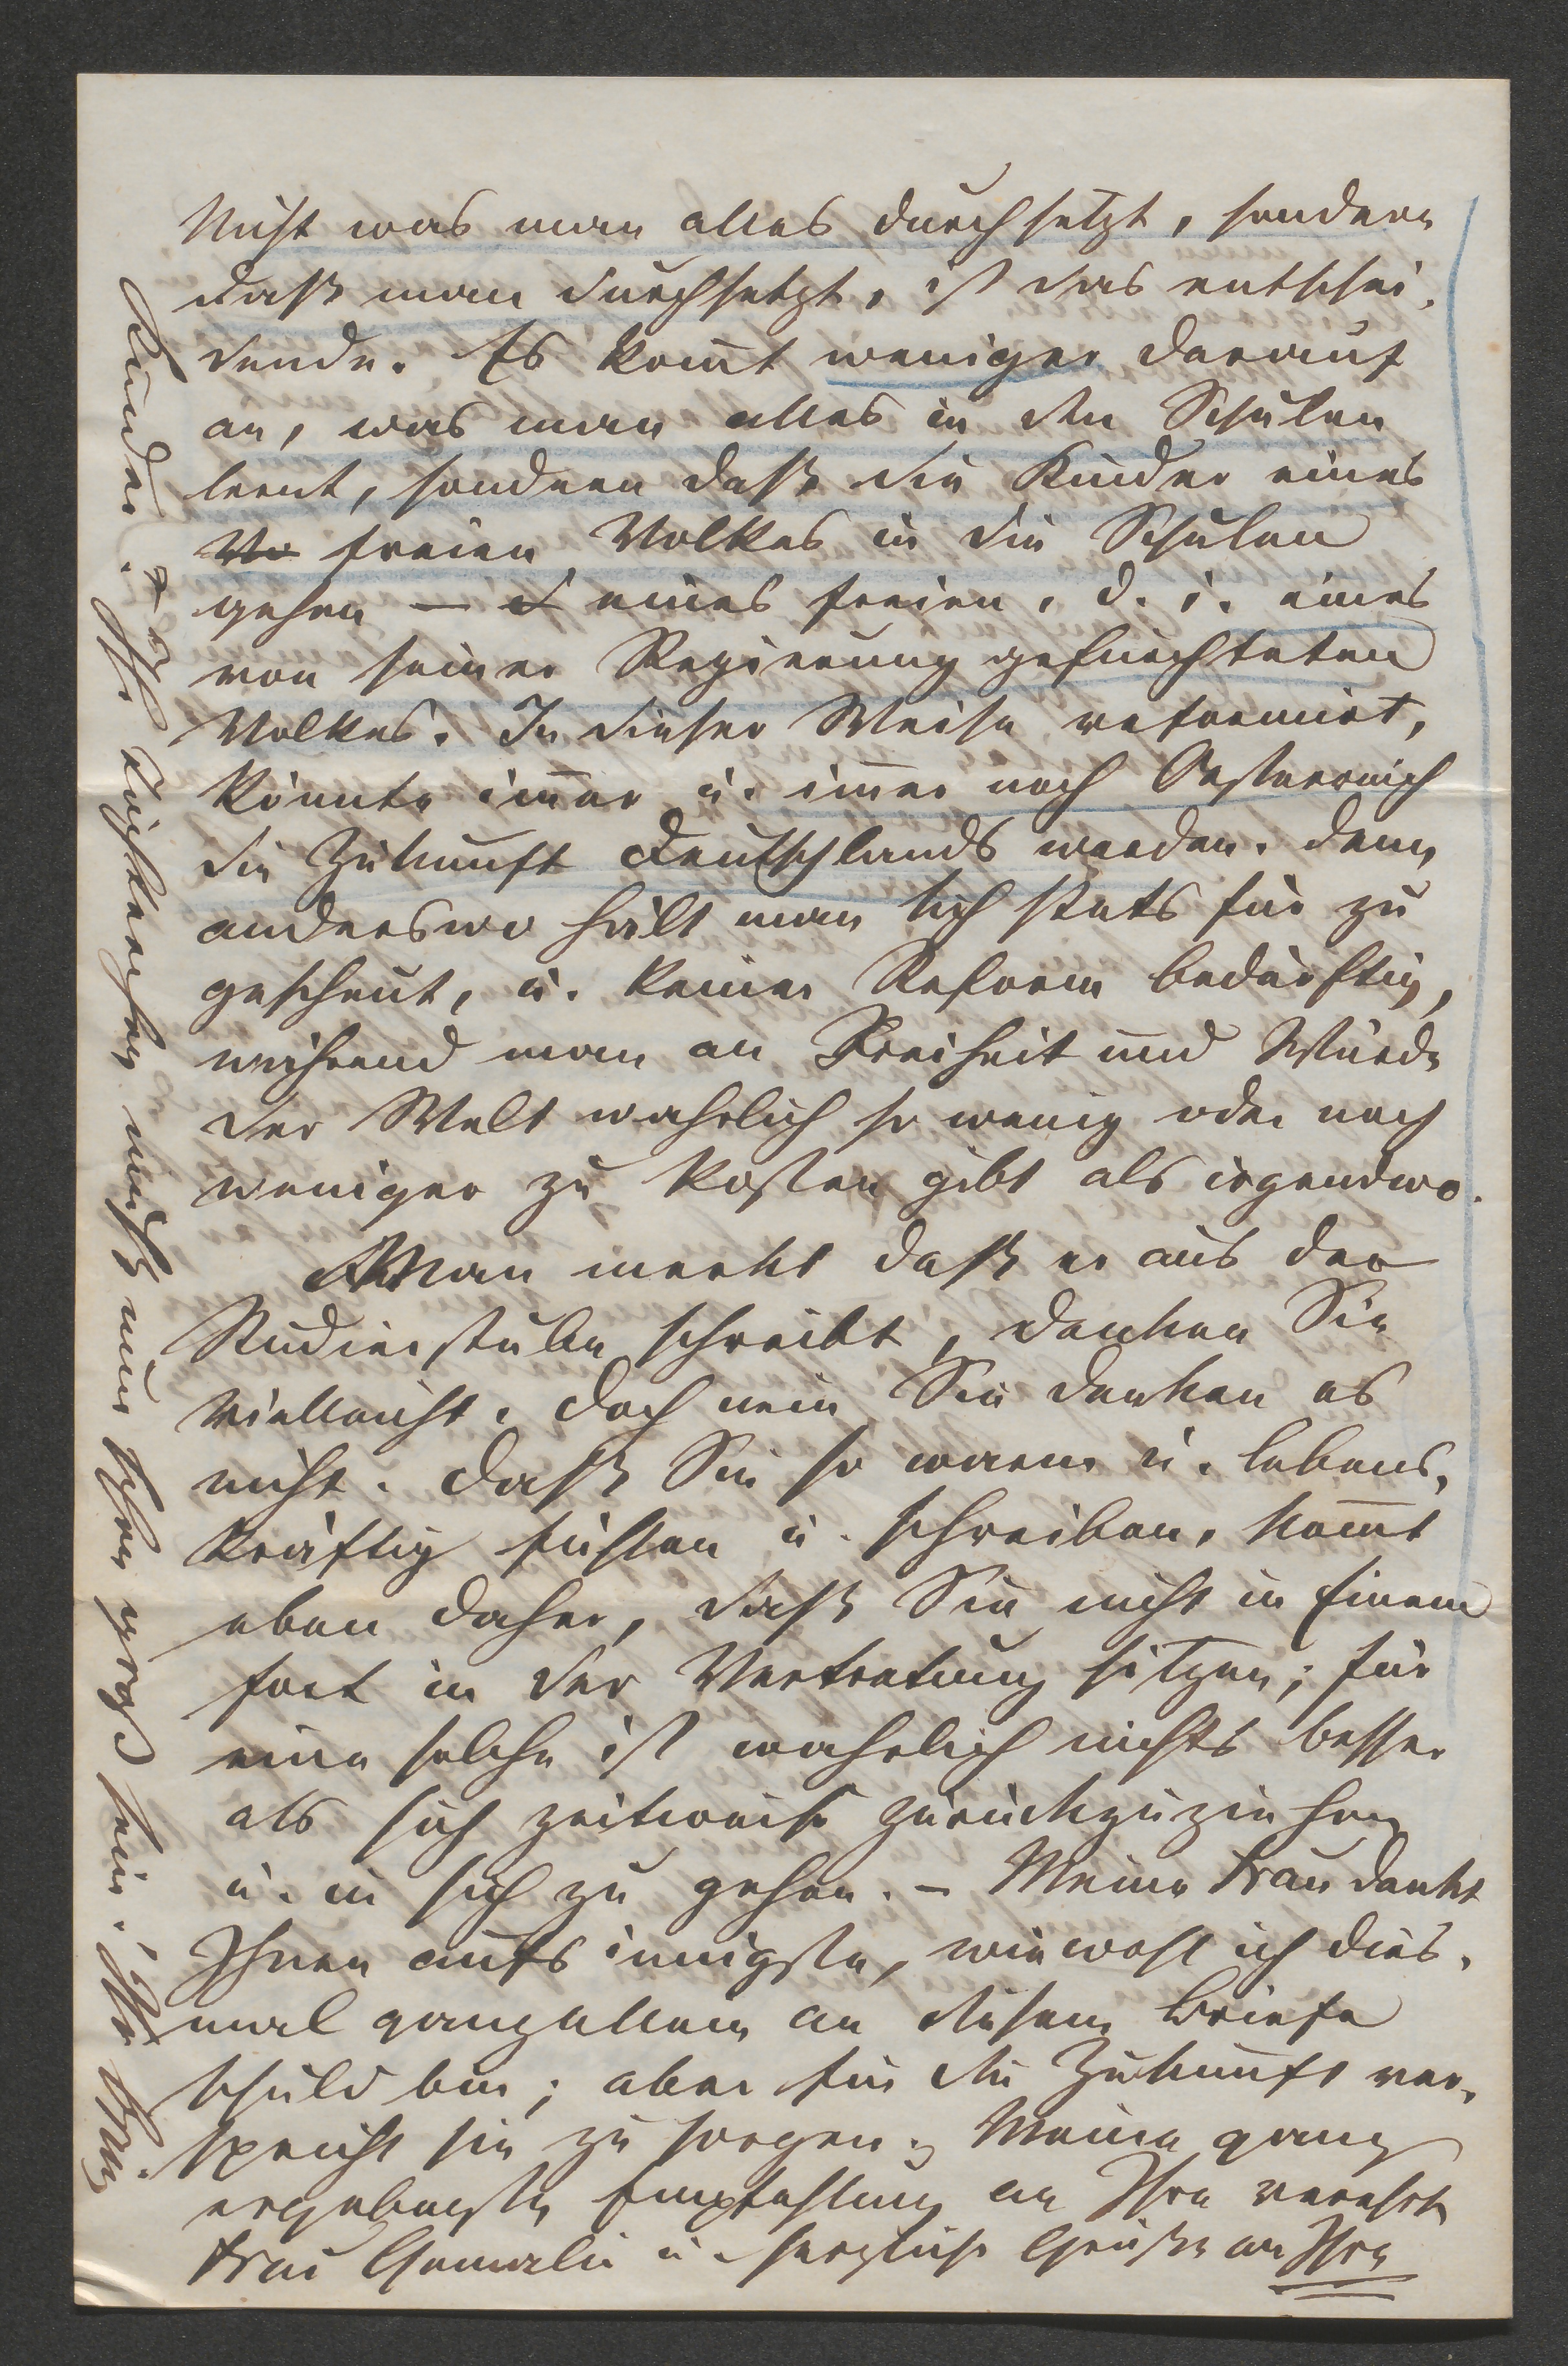 Nicht was man alles durchsetzt, sondern
daß man durchsetzt, ist das entschei-
dende. Es kom̄t weniger darauf
an, was man alles in den Schulen
lernt, sondern daß die Kinder eines
Vo freien Volkes in die Schulen
gehen — d eines freien, d. i. eines
von seiner Regierung gefürchteten
Volkes. In dieser Weise reformirt,
könnte im̄er u. im̄er noch Oesterreich
die Zukunft Deutschlands werden. Denn
anderswo hält man sich stets für zu
gescheut, u. keiner Reform bedürftig,
während man an Freiheit und Würde
der Welt wahrlich so wenig oder noch
weniger zu kosten gibt als irgendwo.
Man merkt daß er aus der
Studierstube schreibt, denken Sie
vielleicht. Doch nein Sie denken es
nicht. Daß Sie so warm u. lebens-
kräftig fühlen u. schreiben, kom̄t
eben daher, daß Sie nicht in Einem
fort in der Vertretung sitzen; für
eine solche ist wahrlich nichts besser
als sich zeitweise zurückzuziehen
u. in sich zu gehen. – Meine Frau dankt
Ihnen aufs innigste, wiewohl ich dies-
mal ganz allein an diesem Briefe
schuld bin; aber für die Zukunft ver-
spricht sie zu sorgen. Meine ganz
ergebenste Empfehlung an Ihre verehrte
Frau Gemalin u. herzliche Grüße an Ihre
Kinder. Ihr Töchterchen muß nun schon groß sein. Ihr